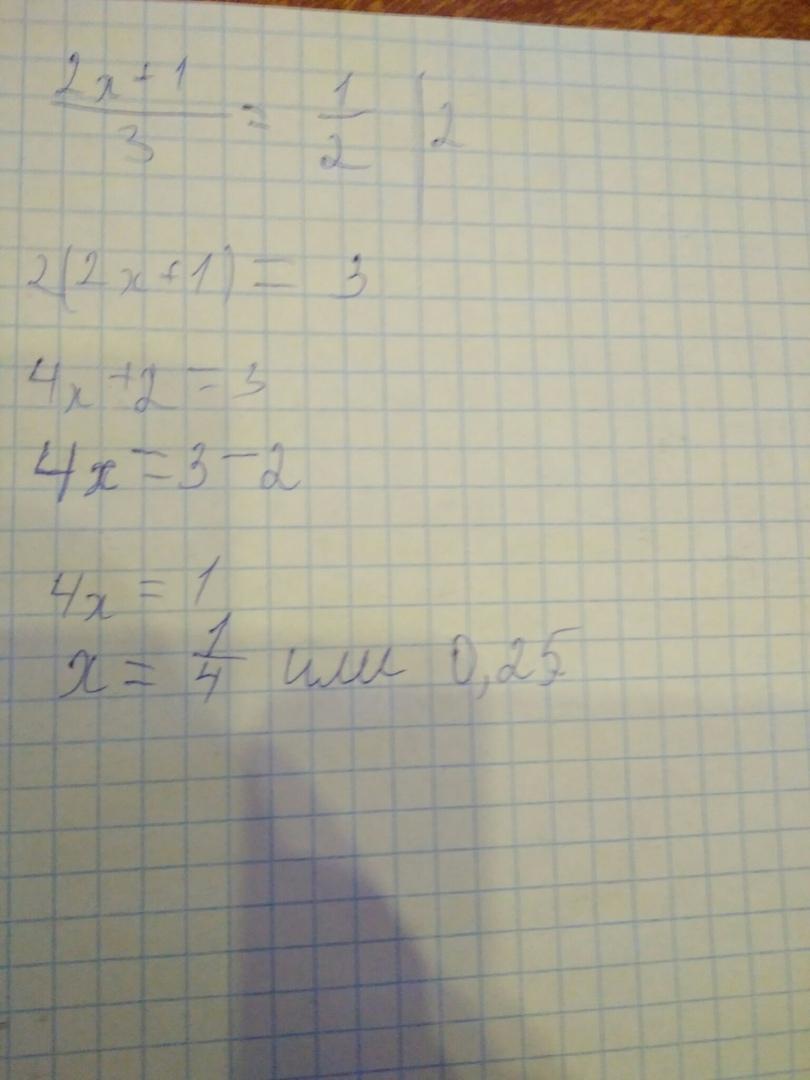 2x+1/3 = 1/2 | 2
2(2x+1) = 3
4x+2=3
4x=3-2
4x = 1
x = 1/4 или 0,25